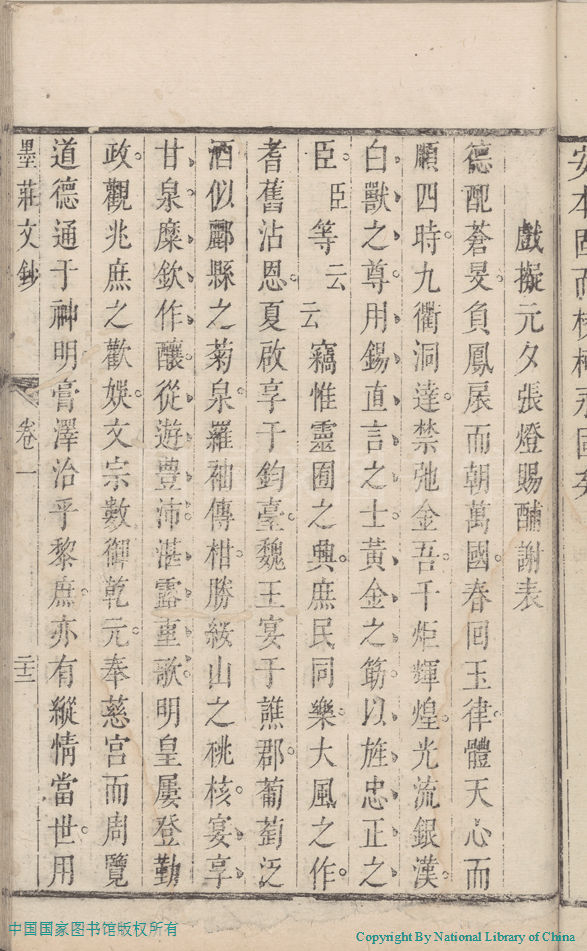 安本固而
戲擬元夕張燈賜酺謝表
德配蒼旻負鳳扆而朝萬國春回玉律體天心而
順四時九衢洞達禁弛金吾千炬輝煌光流銀漢
白獸之尊用錫直言之士黃金之筯以旌忠正之
臣臣等云云竊惟靈囿之興庶民同樂大風之作
耆舊沾恩夏啟享于鈞臺魏王宴于譙郡葡萄泛
酒似酈縣之菊泉羅袖傳柑勝綏山之桃核宴享
甘泉糜欽作釀從遊豊沛湛露重歌明皇屢登勤
政觀兆庶之歡娛文宗數御乾元奉慈宮而周覽
道德通于神明膏澤洽乎黎庶亦有縱情當世用
墨莊文鈔 卷一 二十三
中国国家图书馆版权所有
Copyright By National Library of China